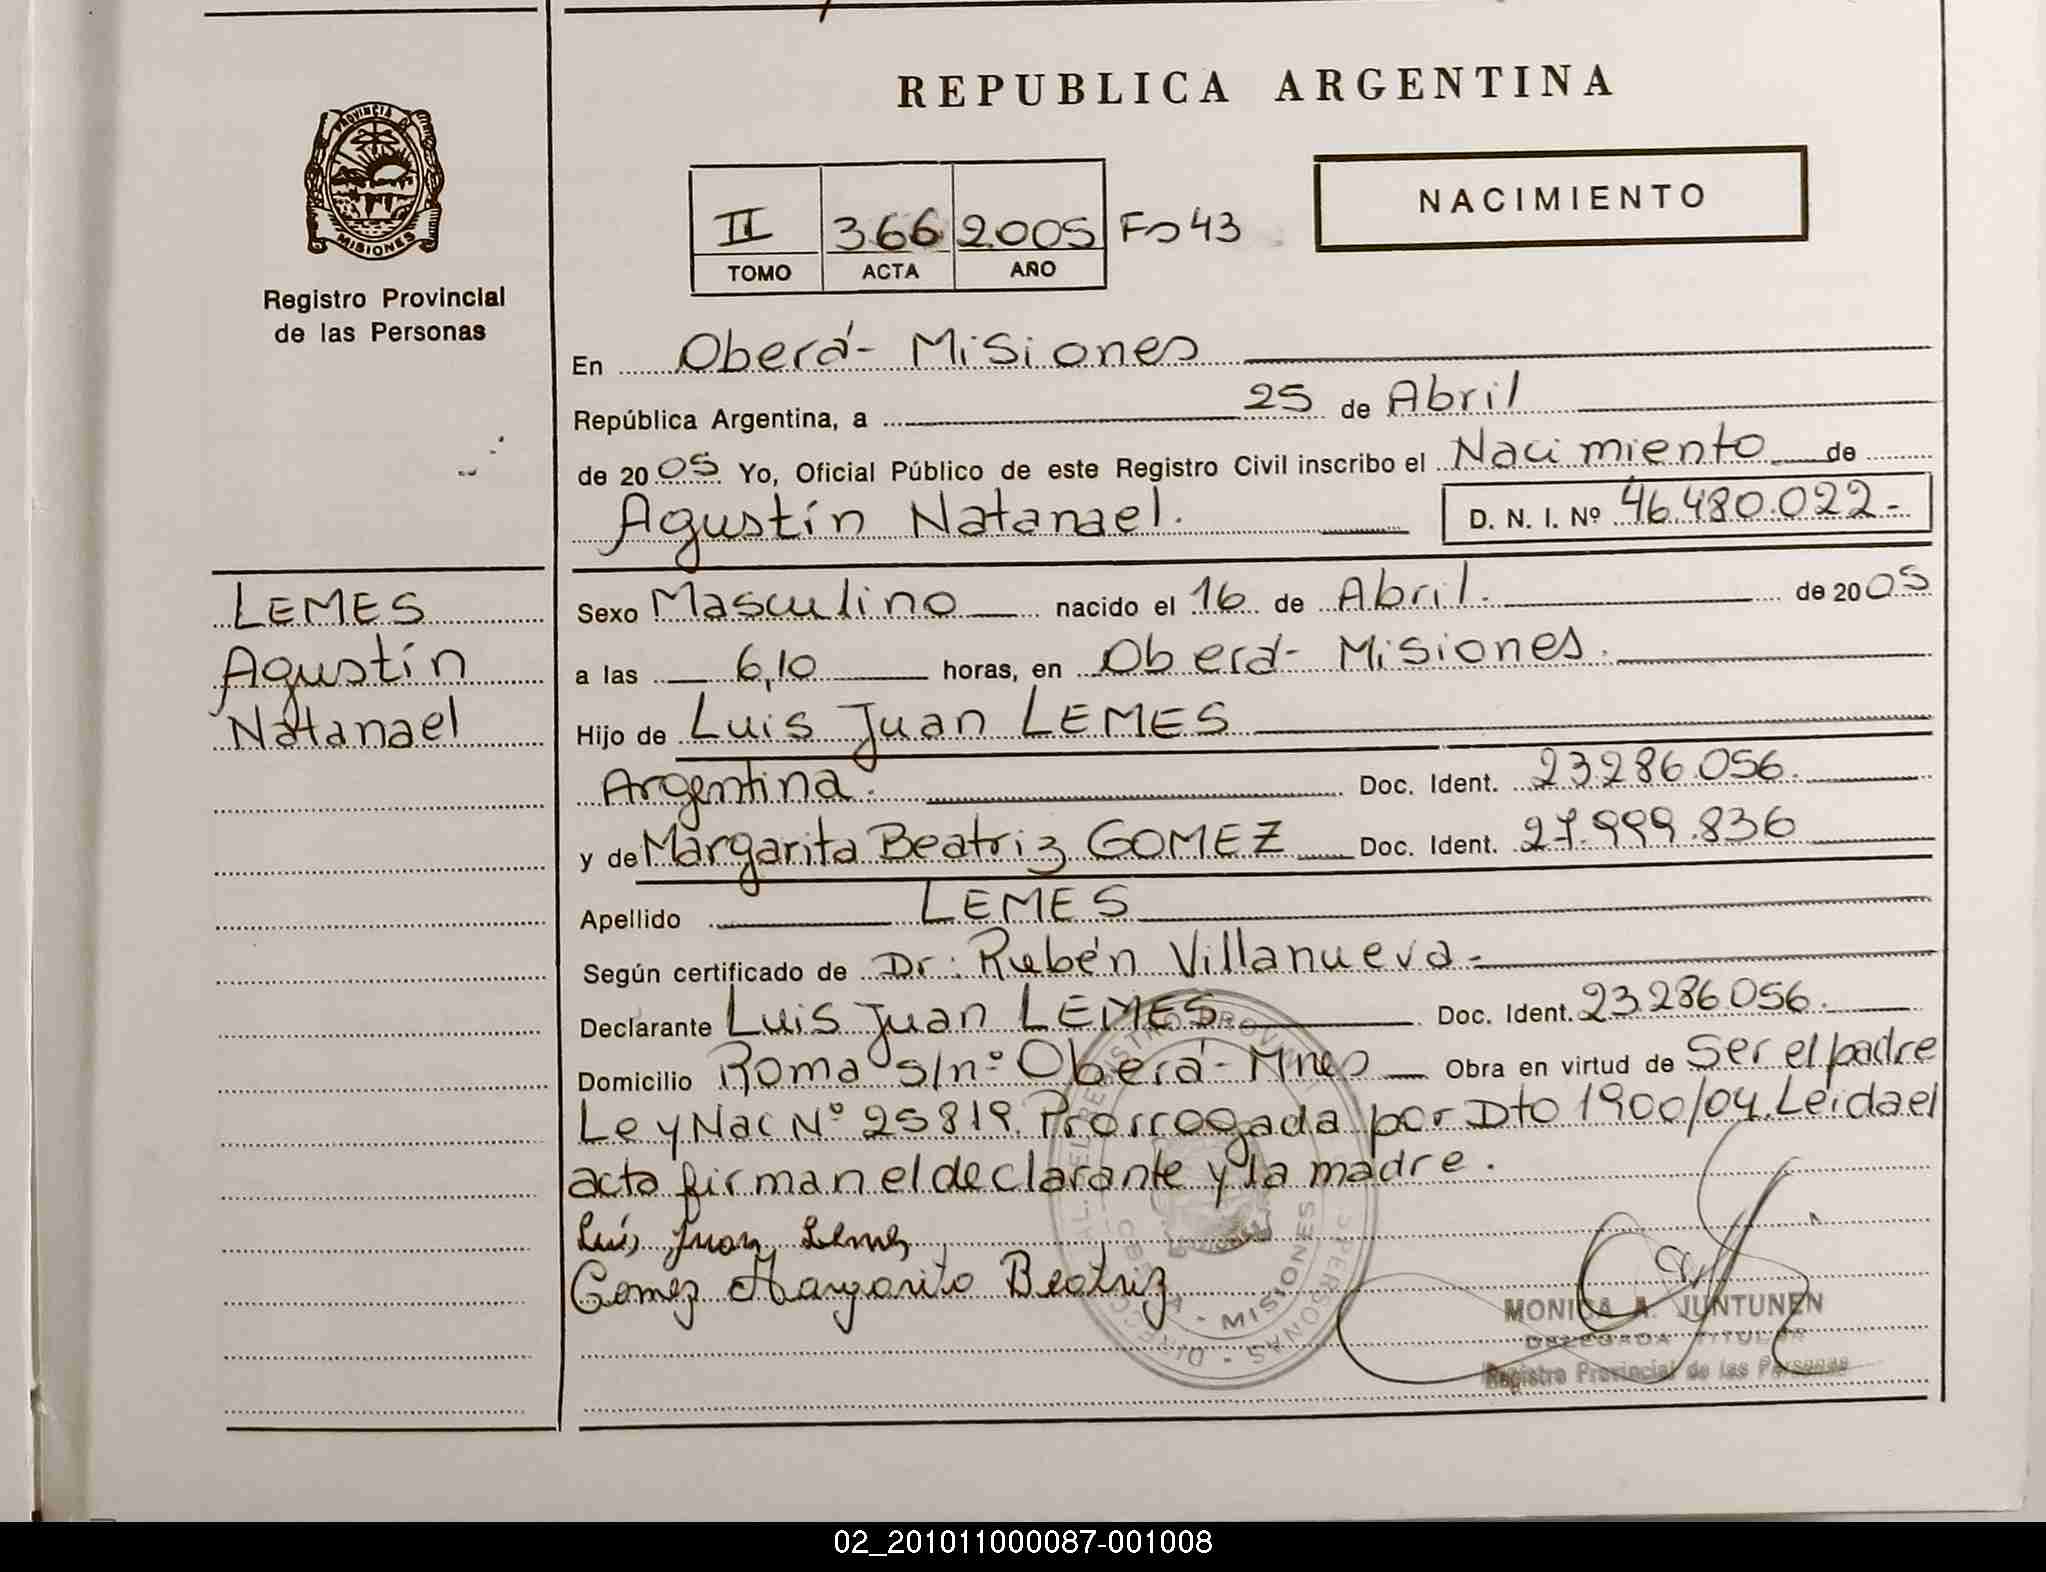 REPUBLICA ARGENTINA
PROVINCIA DE
MISIONES
Registro Provincial
de las Personas
II 366 2005 Fo 43
TOMO ACTA AÑO
NACIMIENTO
En Oberá- Misiones
República Argentina, a 25 de Abril
de 2005 Yo, Oficial Público de este Registro Civil inscribo el Nacimiento de
Agustín Natanael. D. N. I. Nº 46.480.022-
LEMES
Agustín
Natanael
Sexo Masculino nacido el 16 de Abril. de 2005
a las 6,10 horas, en Oberá- Misiones.
Hijo de Luis Juan LEMES
Argentina. Doc. Ident. 23.286.056.
y de Margarita Beatriz GOMEZ Doc. Ident. 27.999.836
Apellido LEMES
Según certificado de Dr: Rubén Villanueva-
Declarante Luis Juan LEMES Doc. Ident. 23.286.056.
Domicilio Roma s/nº Oberá- Mnes Obra en virtud de Ser el padre
Ley Nac Nº 25819. Prorrogada por Dto 1900/04. Leida el
acta firman el declarante y la madre.
Luis Juan Lemes
Gomez Margarita Beatriz
MISIONES
MONICA A. JUNTUNEN
DELEGADA TITULAR
Registro Provincial de las Personas
02_201011000087-001008